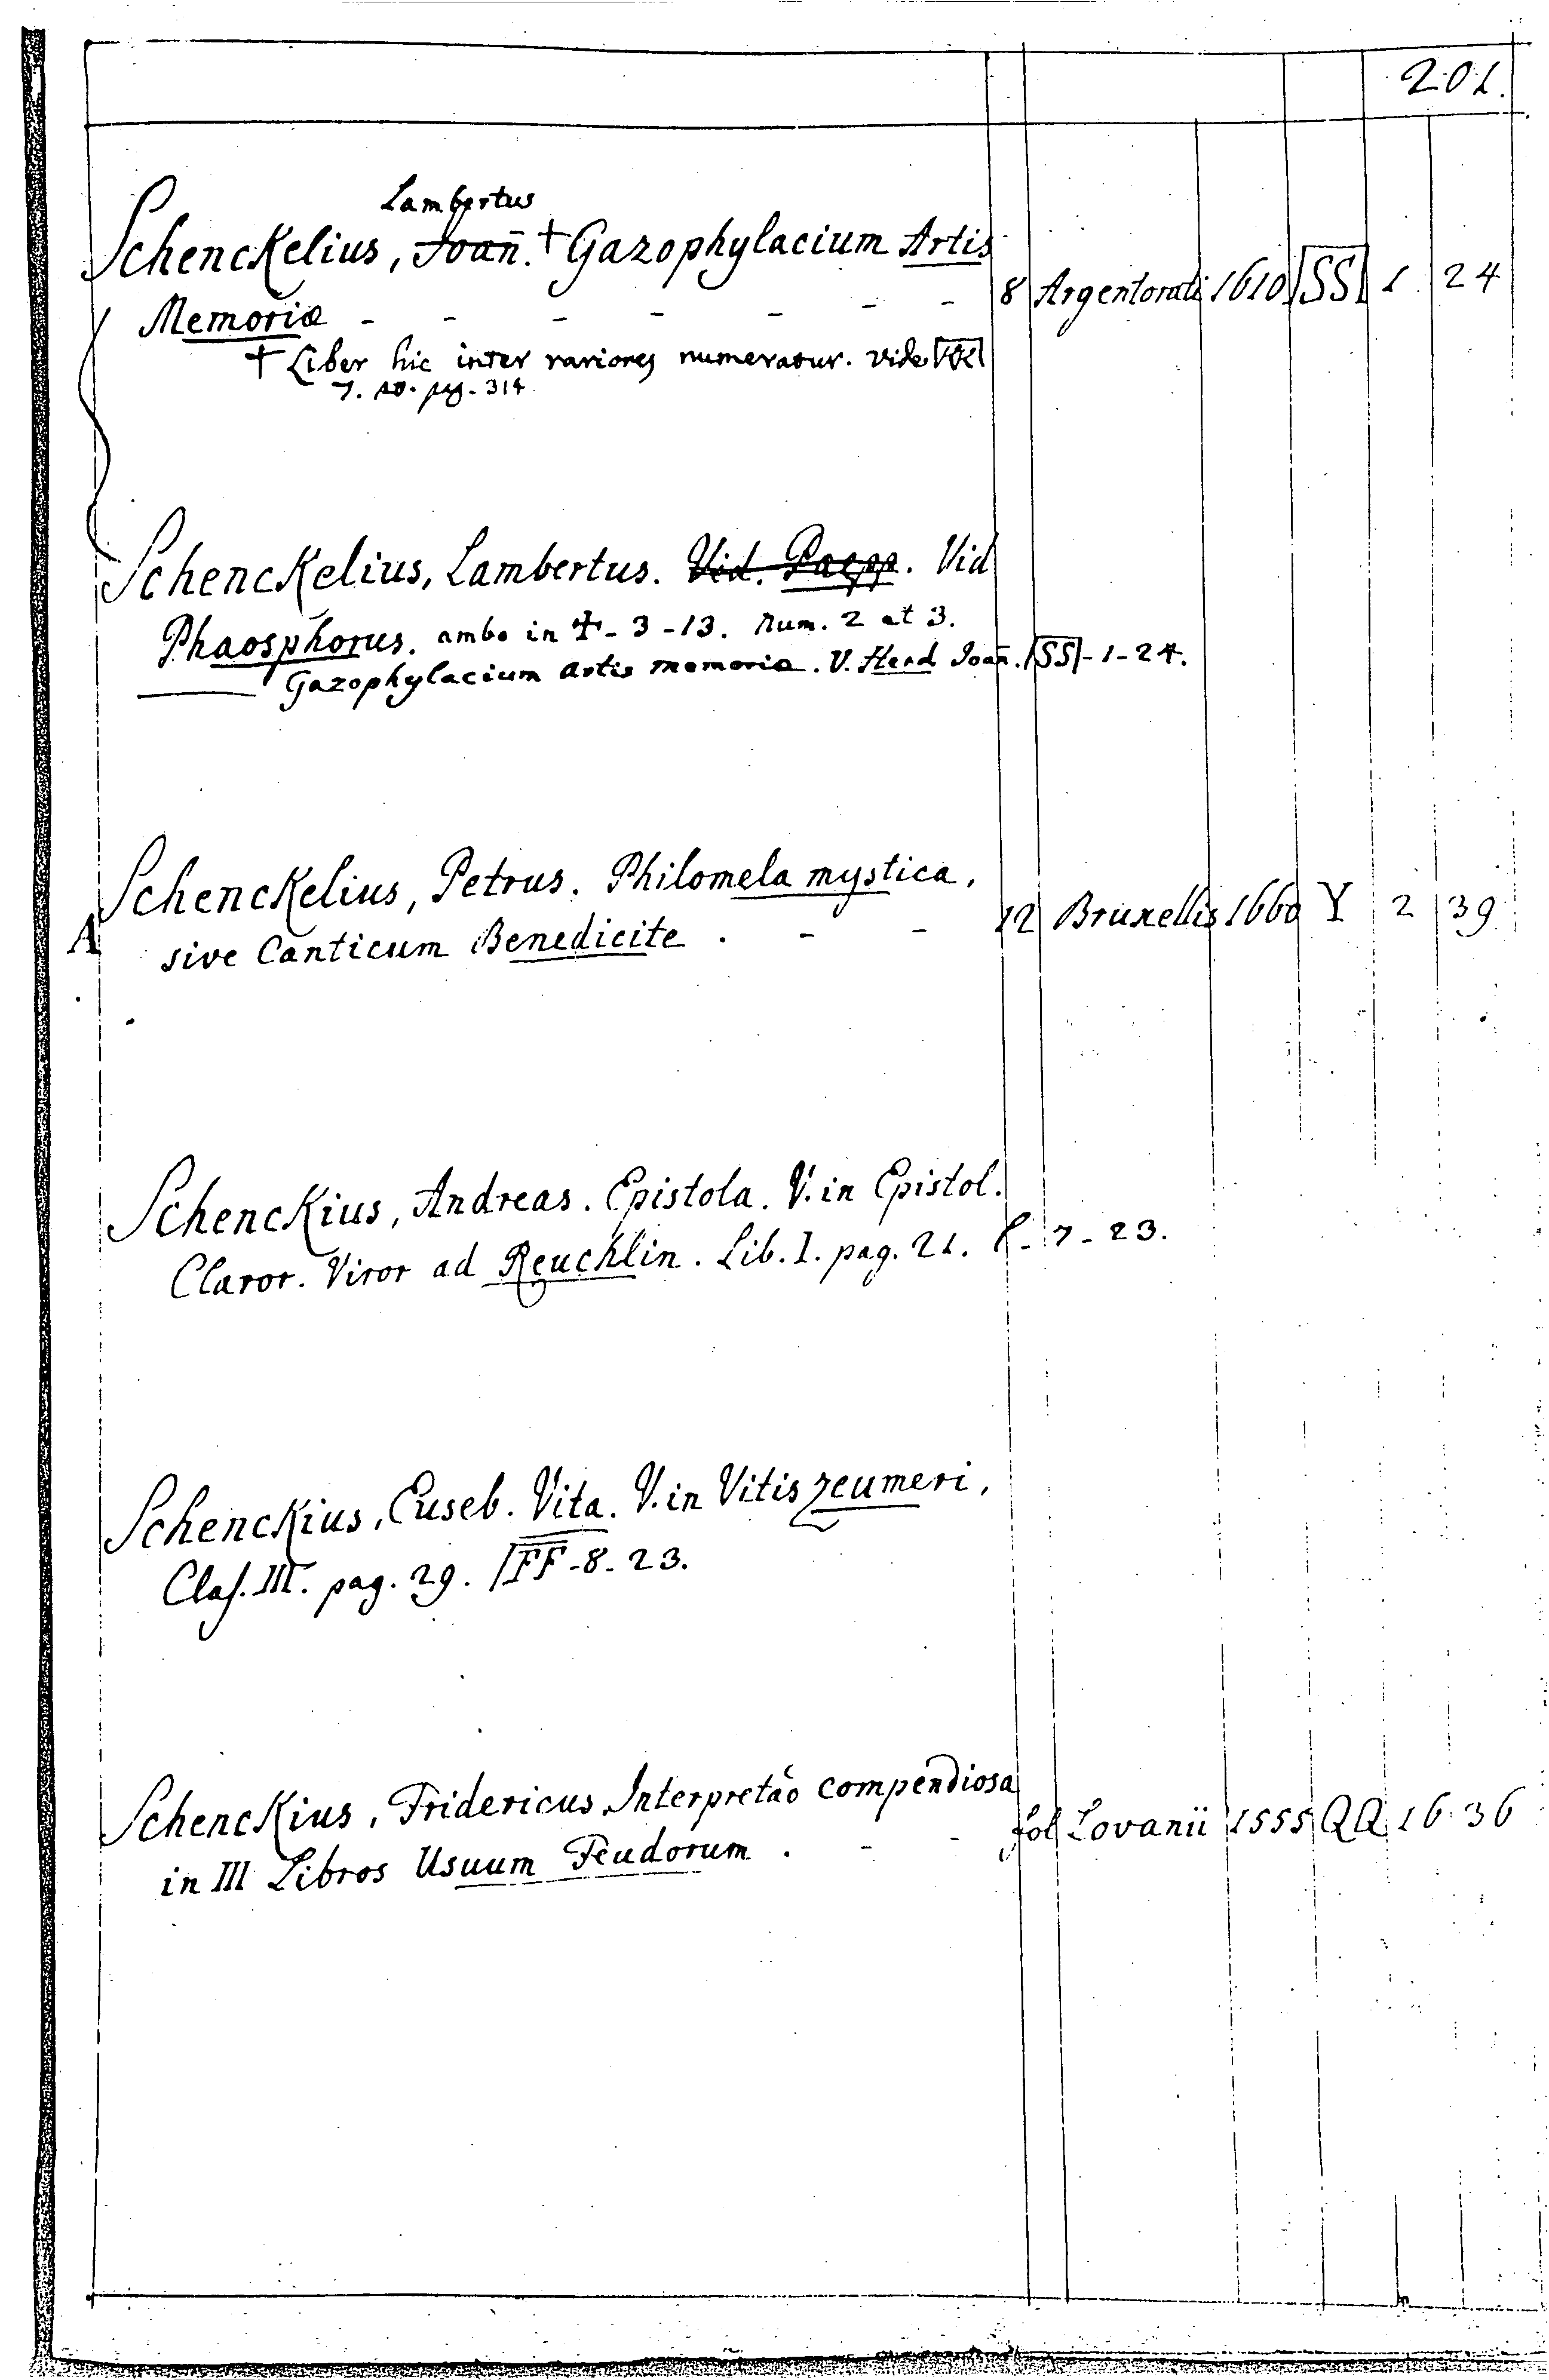 201.
Lambertus
Schenckelius, Joañ. † Gazophylacium Artis
Memoriæ - - - - - - - 8 Argentorati 1610 SS 1 24
† Liber hic inter rariores numeratur. vide
7. 10. pag. 314
Schenckelius, Lambertus. Vid. Paepp. Vid
Phaosphorus. ambo in - 3 - 13. Num. 2 et 3.
Gazophylacium artis memoriæ. V. Joañ. SS - 1 - 24.
Schenckelius, Petrus. Philomela mystica,
A sive Canticum Benedicite . - - 12 Bruxellis 1660 Y 2 39
Schenckius, Andreas. Epistola. V. in Epistol.
Claror. Viror ad Reuchlin. Lib. I. pag. 21. - 7 - 23.
Schenckius, Euseb. Vita. V. in Vitis Zeumeri,
Claſ. III. pag. 29. FF - 8 - 23.
Schenckius, Fridericus Interpretão compendiosa
in III Libros Usuum Feudorum . - - fol Lovanii 1555 QQ 16 36